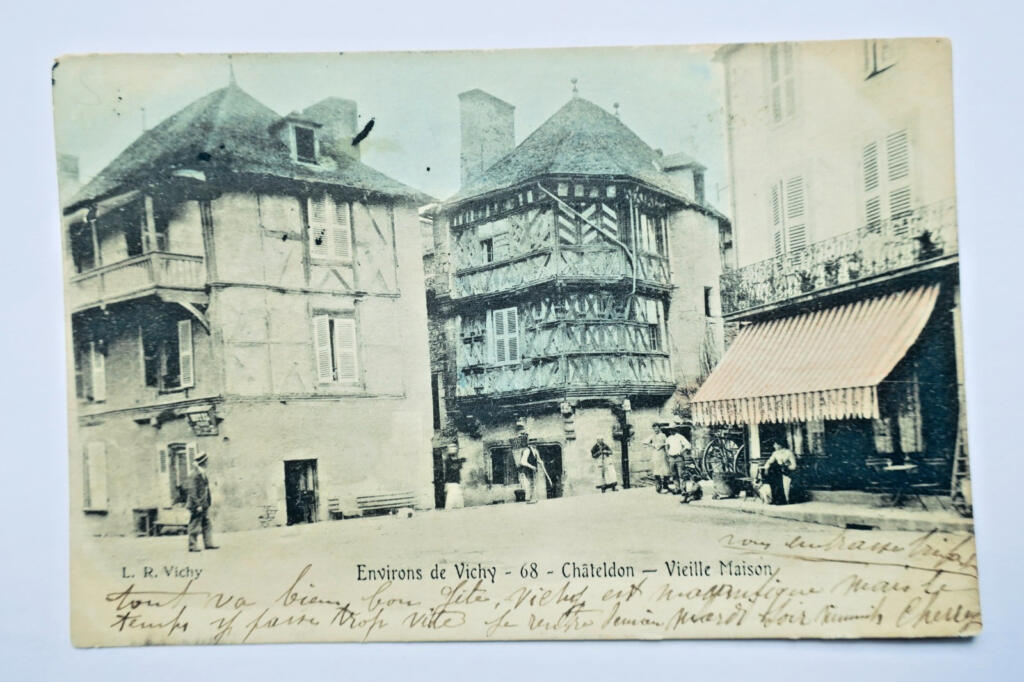 L. R. Vichy
Environs de Vichy - 68 - Châteldon — Vieille Maison
vous embrasse
tout va bien, bon gîte, Vichy est magnifique mais le
temps y passe trop vite je rentre demain mardi soir